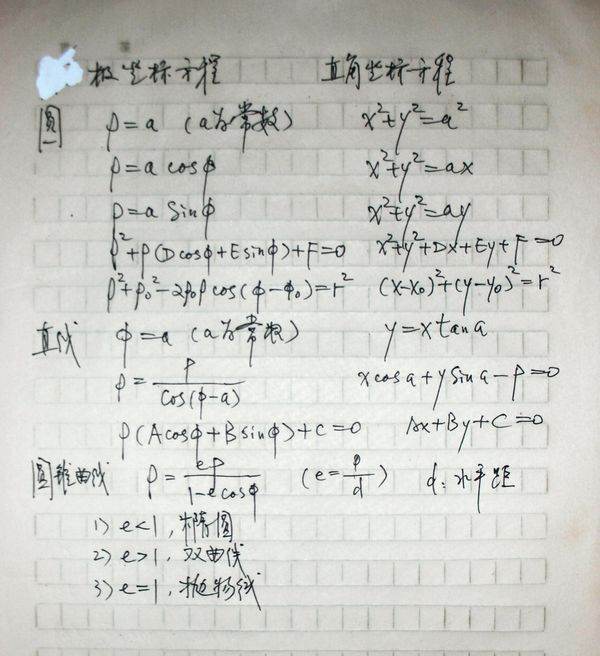 极坐标方程 直角坐标方程
圆 ρ=a (a为常数) x²+y²=a²
ρ=a cosφ x²+y²=ax
ρ=a Sinφ x²+y²=ay
ρ²+ρ(Dcosφ+Esinφ)+F=0 x²+y²+Dx+Ey+F=0
ρ²+ρ₀²-2ρ₀ρcos(φ-φ₀)=r² (x-x₀)²+(y-y₀)²=r²
直线 φ=a (a为常数) y=xtana
ρ=p/cos(φ-a) xcosa+ySina-p=0
ρ(Acosφ+Bsinφ)+C=0 Ax+By+C=0
圆锥曲线 ρ=ep/(1-ecosφ) (e=ρ/d) d:水平距
1) e<1,椭圆
2) e>1,双曲线
3) e=1,抛物线